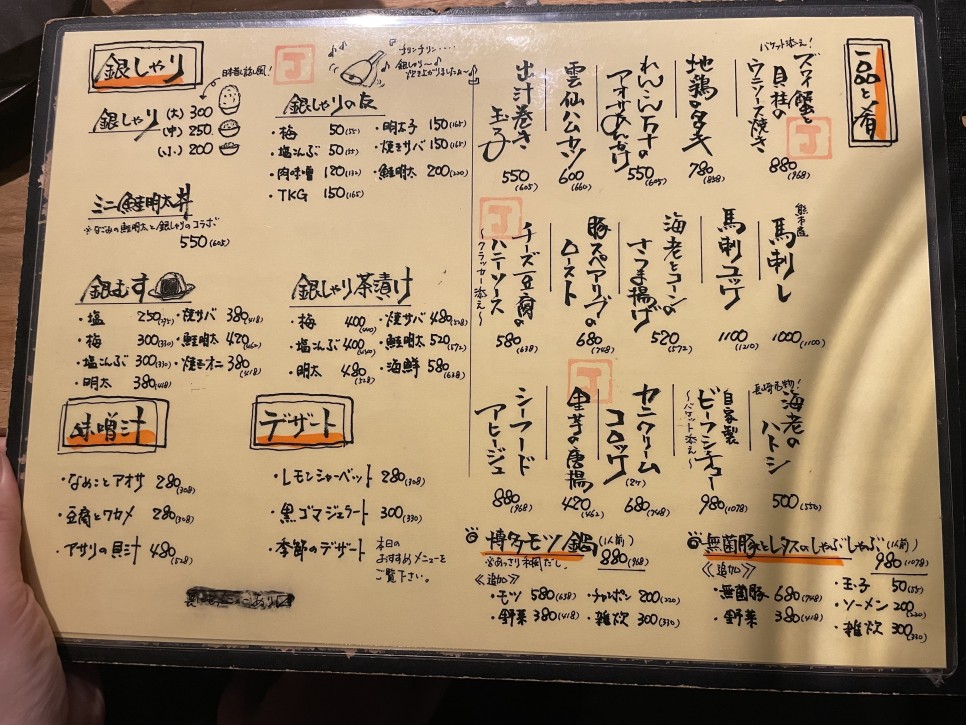 一品と肴
バケット添え!
ズワイ蟹と
貝柱の
ウニソース焼き
880(968)
地鶏のタタキ
780(858)
れんこん万十の
アオサあんかけ
550(605)
雲仙ハムカツ
600(660)
出汁巻き
玉子
550(605)
熊本産
馬刺し
1000(1100)
馬刺ユッケ
1100(1210)
海老とコーンの
さつま揚げ
520(572)
豚スペアリブの
ロースト
680(748)
チーズ豆腐の
ハニーソース
~クラッカー添え~
580(638)
長崎名物!
海老の
ハトシ
500(550)
自家製
ビーフシチュー
~バケット添え~
980(1078)
カニクリーム
コロッケ
(2ケ)
680(748)
里芋の唐揚
420(462)
シーフード
アヒージョ
880(968)
銀しゃり
日本昔ばなし風!
銀しゃり (大) 300
(中) 250
(小) 200
チリンチリン・・・・
銀しゃり~♪
炊き上がりましたよ~♪
銀しゃりの友
・梅 50(55)
・塩こんぶ 50(55)
・肉味噌 120(132)
・TKG 150(165)
・明太子 150(165)
・焼きサバ 150(165)
・鮭明太 200(220)
ミニ鮭明太丼
※なごみの鮭明太と銀しゃりのコラボ
550(605)
銀むす
・塩 250(275)
・梅 300(330)
・塩こんぶ 300(330)
・明太 380(418)
・焼サバ 380(418)
・鮭明太 420(462)
・焼きオニ 380(418)
銀しゃり茶漬け
・梅 400(440)
・塩こんぶ 400(440)
・明太 480(528)
・焼サバ 480(528)
・鮭明太 520(572)
・海鮮 580(638)
味噌汁
・なめことアオサ 280(308)
・豆腐とワカメ 280(308)
・アサリの貝汁 480(528)
デザート
・レモンシャーベット 280(308)
・黒ゴマジェラート 300(330)
・季節のデザート 本日の
おすすめメニューを
ご覧下さい。
博多モツ鍋(1人前)
880(968)
※あっさり和風だし。
≪追加≫
・モツ 580(638) ・チャンポン 200(220)
・野菜 380(418) ・雑炊 300(330)
無菌豚とレタスのしゃぶしゃぶ(1人前)
980(1078)
≪追加≫
・無菌豚 680(748)
・野菜 380(418)
・玉子 50(55)
・ソーメン 200(220)
・雑炊 300(330)